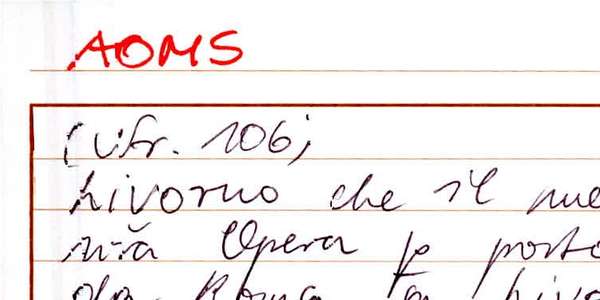 AOMS
(Vfr. 106;
Livorno che il nue
n-ra Opera p porto
da Roma a Livo